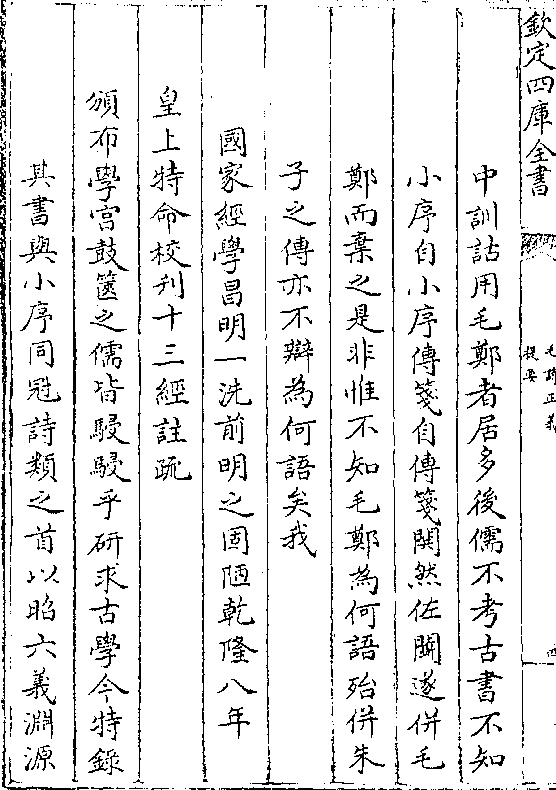 欽定四庫全書
毛詩正義
提要
四
中訓詁用毛鄭者居多後儒不考古書不知
小序自小序傳箋自傳箋鬨然佐鬭遂併毛
鄭而棄之是非惟不知毛鄭為何語殆併朱
子之傳亦不辯為何語矣我
國家經學昌明一洗前明之固陋乾隆八年
皇上特命校刋十三經註疏
頒布學宮鼓篋之儒皆駸駸乎研求古學今特錄
其書與小序同冠詩類之首以昭六義淵源